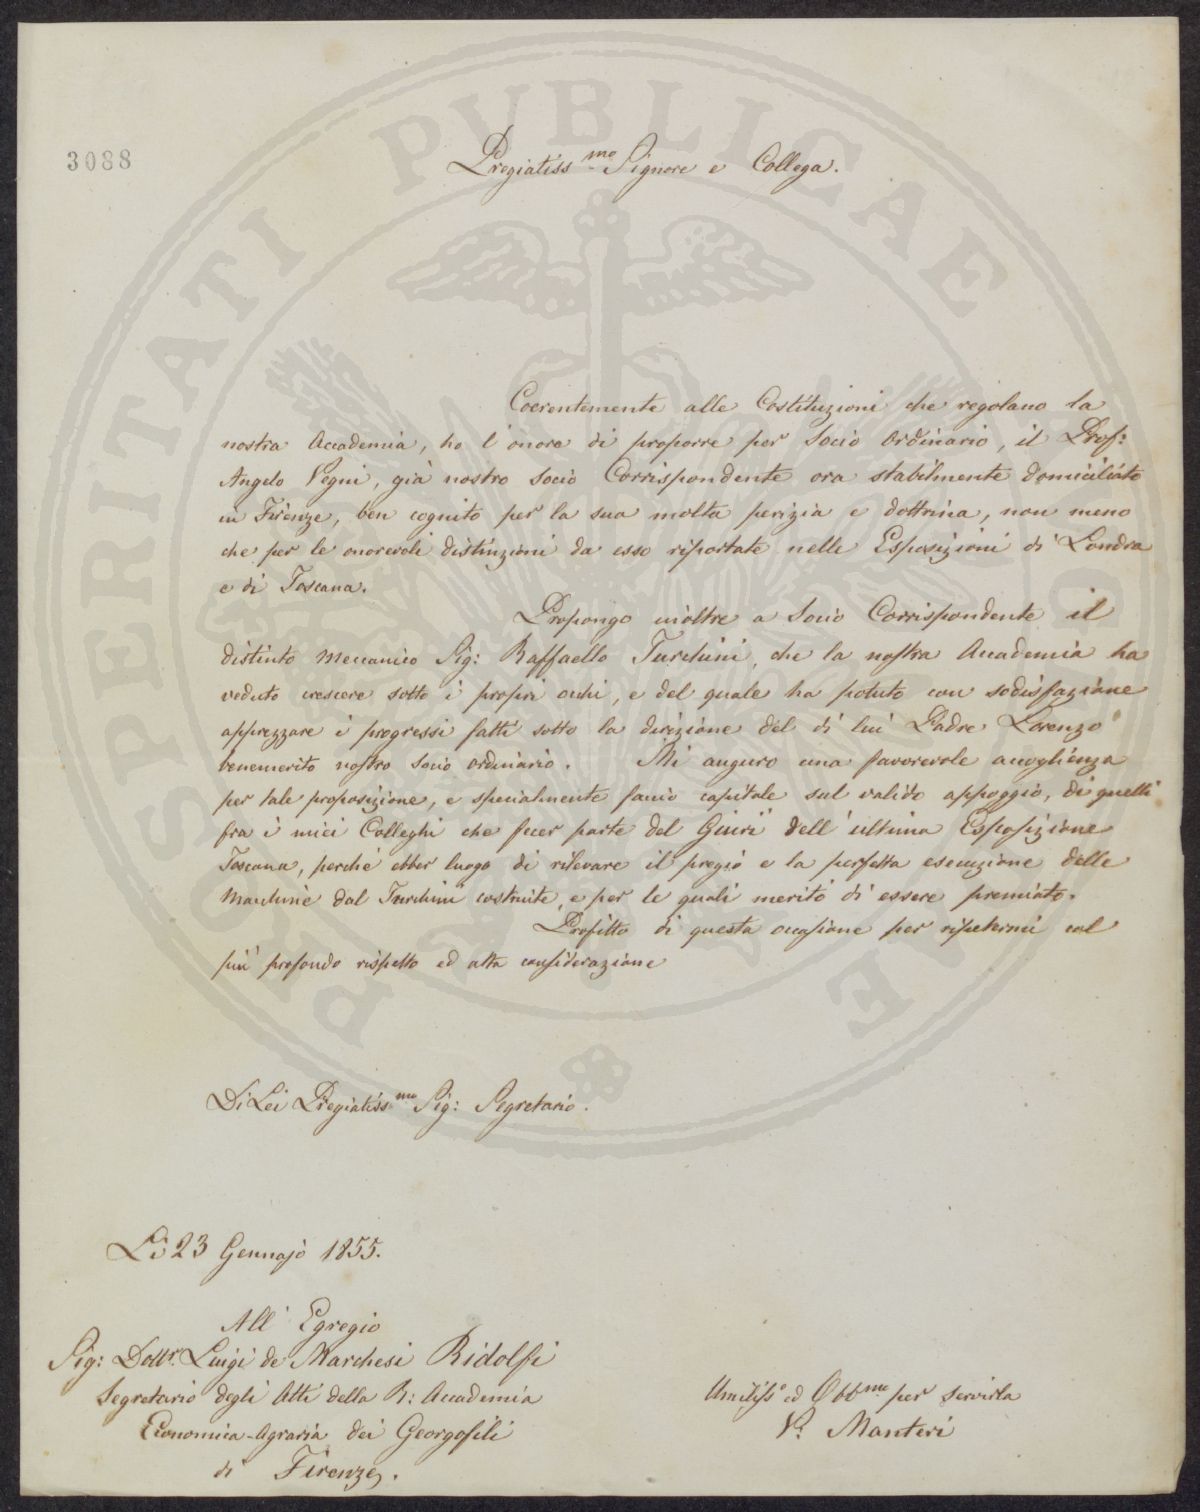 PROSPERITATI PUBLICAE AUGENDAE
3088
Pregiatiss.mo Signore e Collega.
Coerentemente alle Costituzioni che regolano la
nostra Accademia, ho l'onore di proporre per Socio Ordinario, il Prof:
Angelo Vegni, già nostro Socio Corrispondente ora stabilmente domiciliato
in Firenze, ben cognito per la sua molta perizia e dottrina, non meno
che per le onorevoli distinzioni da esso riportate nelle Esposizioni di Londra
e di Toscana.
Propongo inoltre a Socio Corrispondente il
distinto Meccanico Sig: Raffaello Turchini, che la nostra Accademia ha
veduto crescere sotto i proprj occhi, e del quale ha potuto con sodisfazione
apprezzare i progressi fatti sotto la direzione del di lui Padre Lorenzo
benemerito nostro Socio ordinario. Mi auguro una favorevole accoglienza
per tale proposizione, e specialmente faccio capitale sul valido appoggio, di quelli
fra i miei Colleghi che fecer parte del Giurì dell'ultima Esposizione
Toscana, perché ebber luogo di rilevare il pregio e la perfetta esecuzione delle
Macchine dal Turchini costruite, e per le quali meritò di essere premiato.
Profitto di questa occasione per ripetermi col
più profondo rispetto ed alta considerazione
Di Lei Pregiatiss.mo Sig: Segretario.
Li 23 Gennajo 1855.
All' Egregio
Sig: Dottr. Luigi de' Marchesi Ridolfi
Segretario degli Atti della R: Accademia
Economica-Agraria dei Georgofili
di Firenze.
Umiliss.o ed Obb.mo per servirla
V. Manteri